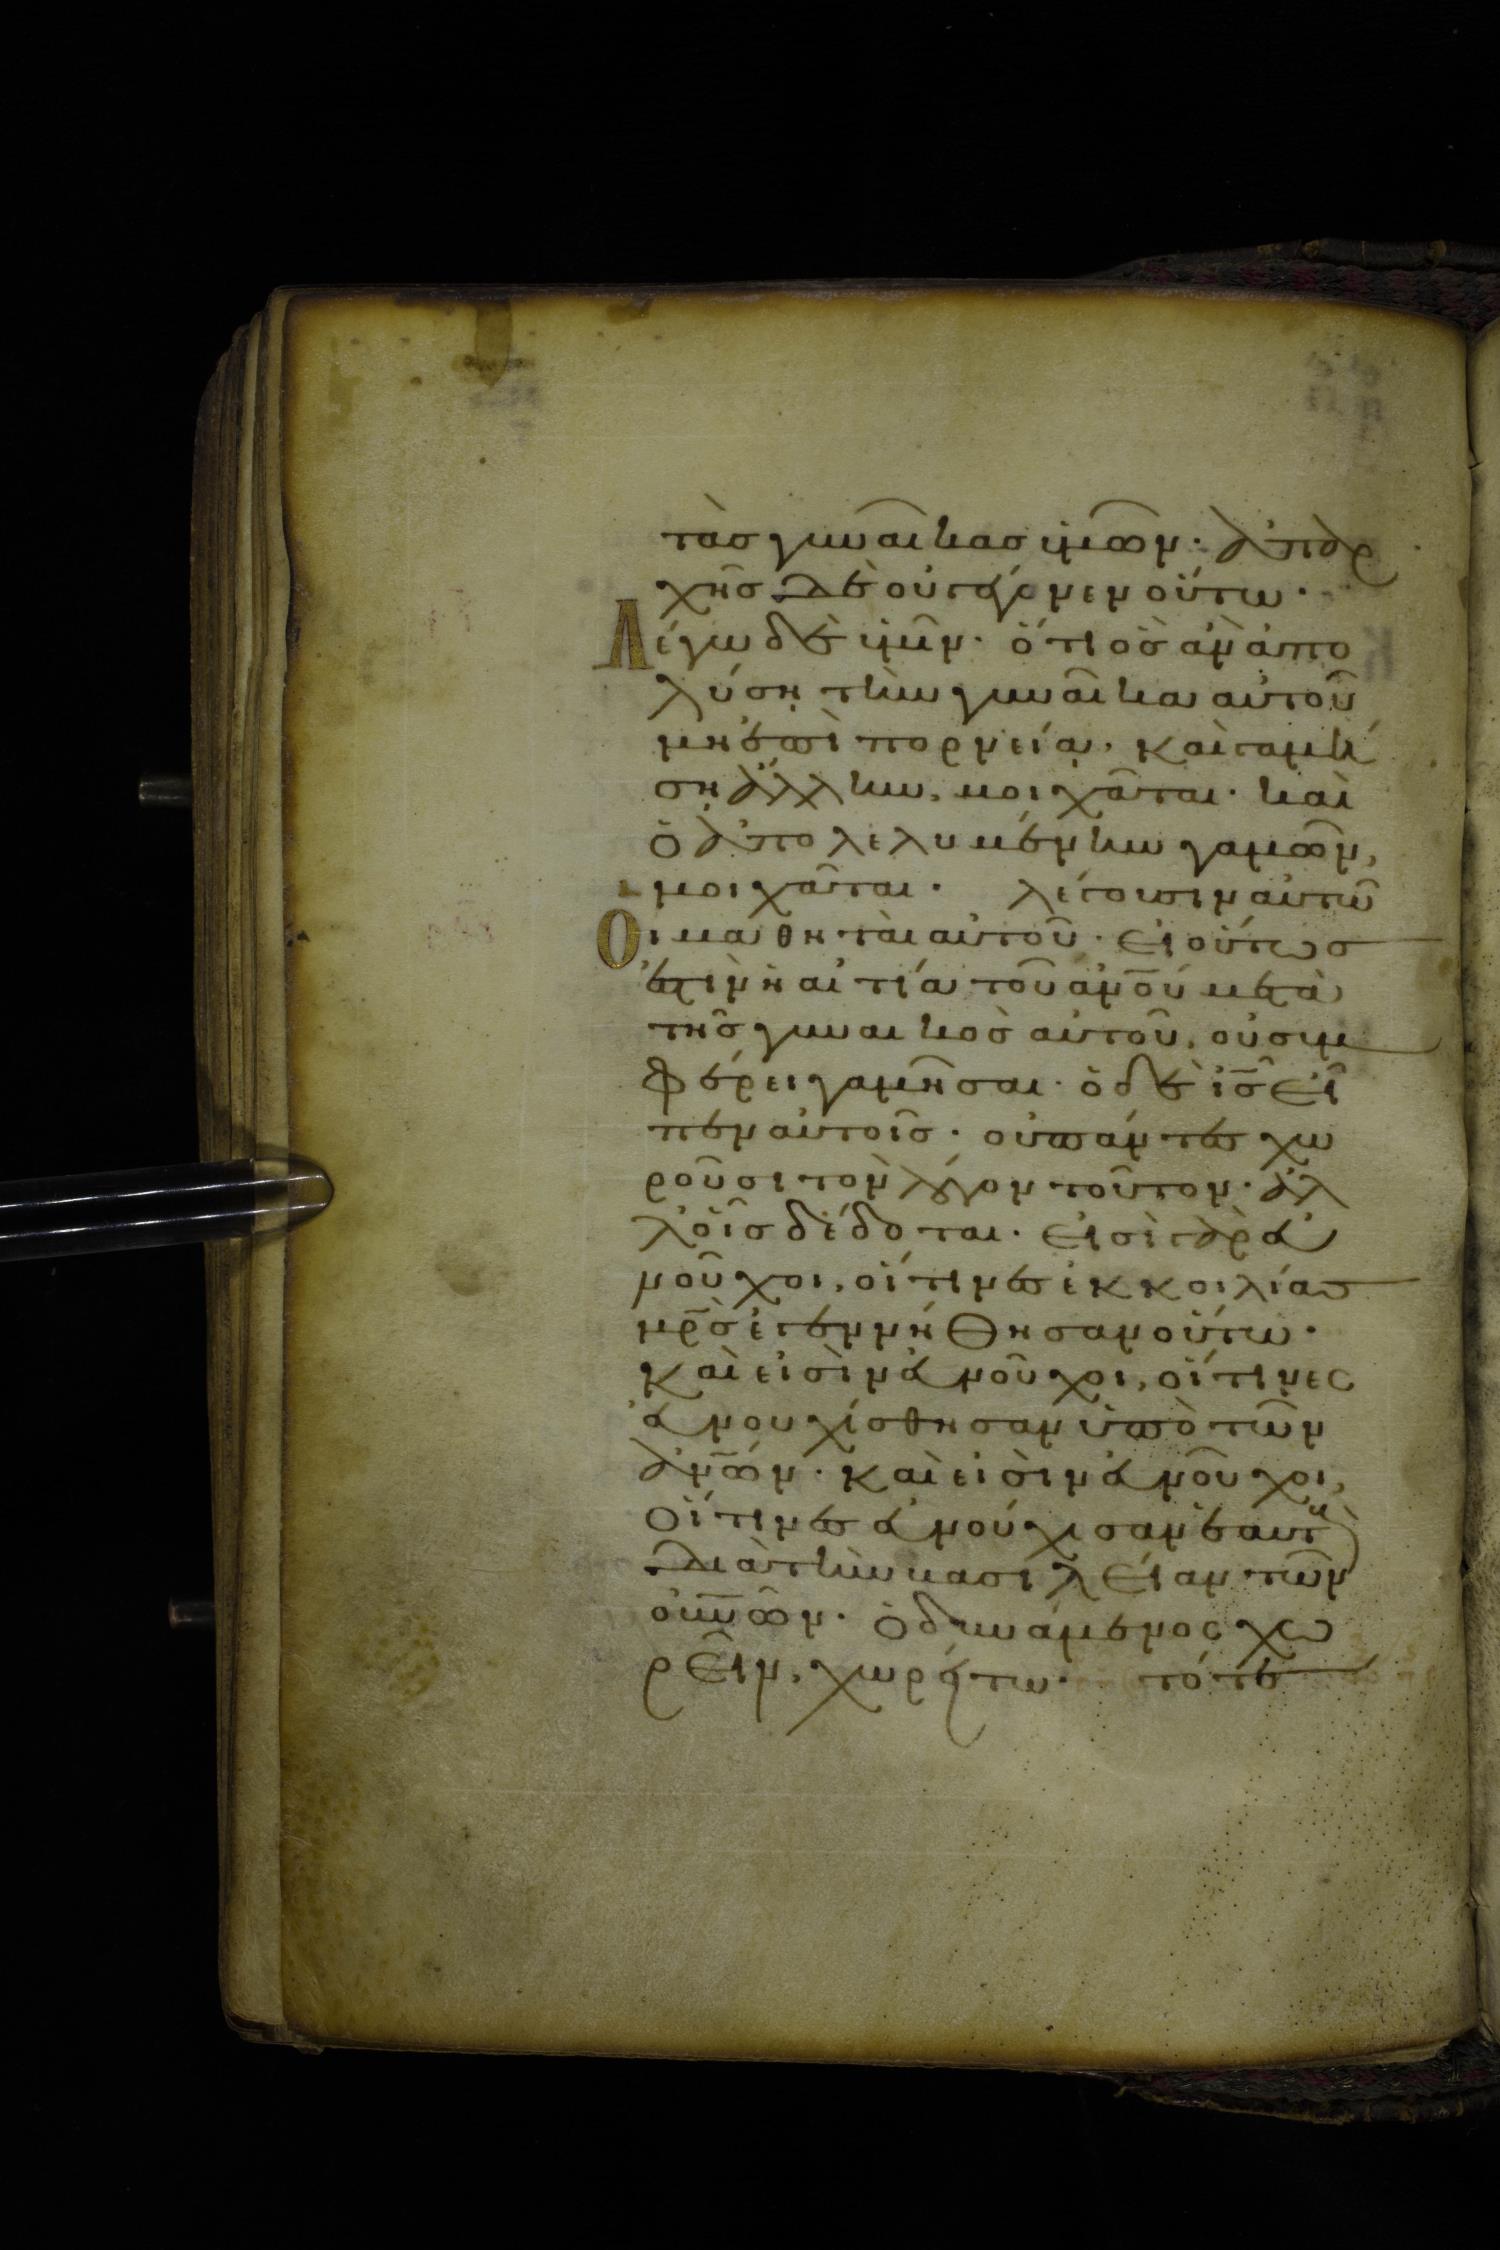 τὰσ γυναῖκασ ὑμῶν· ἀπαρ
χῆσ δὲ οὐ γέγονεν οὕτω·
Λέγω δὲ ὑμῖν· ὅτι ὃσ ἂν ἀπο
λύση τὴν γυναῖκα αὐτοῦ
μὴ ἐπὶ πορνεία, καὶ γαμή
ση ἄλλην, μοιχᾶται· καὶ
ὁ ἀπολελυμένην γαμῶν,
μοιχᾶται· λέγουσιν αὐτῶ
Οἱ μαθηταὶ αὐτοῦ· εἰ οὕτωσ
ἐστὶν ἡ αἰτία τοῦ ἀν̅ου μετὰ
τῆσ γυναικὸσ αὐτοῦ, οὐ συμ
φέρει γαμῆσαι· ὁ δὲ ι̅σ εἶ
πεν αὐτοῖσ· οὐ πάντεσ χω
ροῦσι τὸν λόγον τοῦτον· ἀλ
λ' οἷσ δέδοται· εἰσὶ γὰρ εὐ
νοῦχοι, οἵτινεσ ἐκ κοιλίασ
μρ̅σ ἐγεννήθησαν οὕτω·
καὶ εἰσὶν εὐνοῦχοι, οἵτινες
εὐνουχίσθησαν ὑπὸ τῶν
ἀν̅ων· καὶ εἰσὶν εὐνοῦχοι,
οἵτινεσ εὐνούχισαν ἑαυτοὺσ
διὰ τὴν βασιλείαν τῶν
οὐν̅ων· ὁ δυνάμενος χω
ρεῖν, χωρείτω· τότε